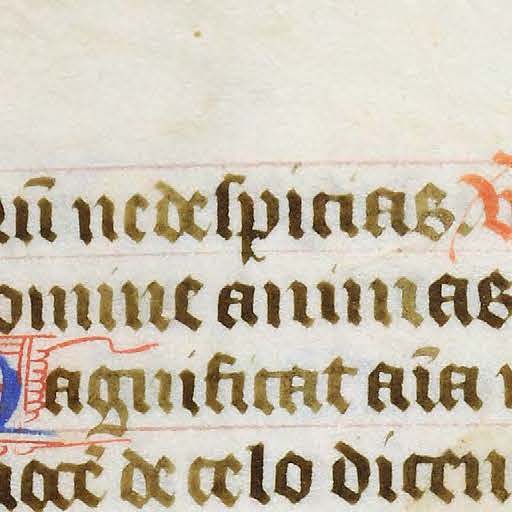 rū ne despicias. R
omine animas
Magnificat aīa
uocē de celo dicen